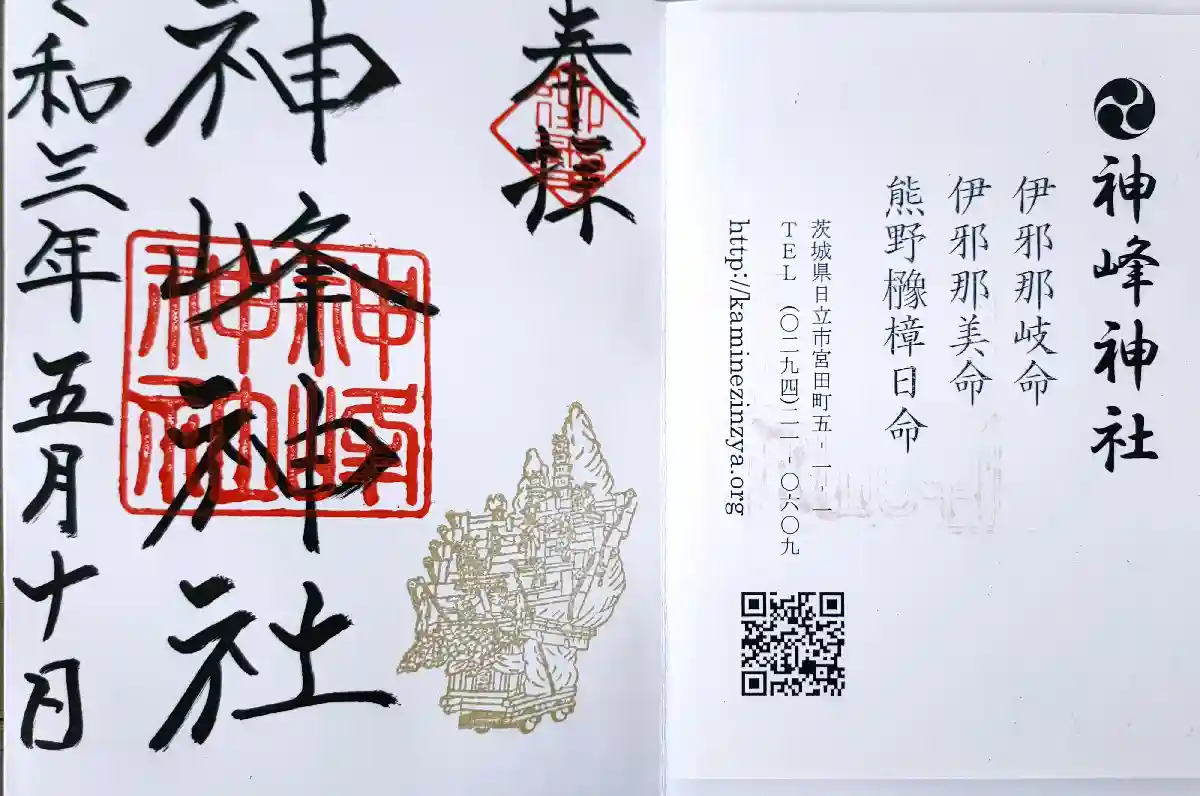 神峰神社
伊邪那岐命
伊邪那美命
熊野櫲樟日命
茨城県日立市宮田町五-一-一
TEL (〇二九四)二一-〇六〇九
http://kaminezinzya.org
奉拝
神峰神社
神峰
神社
和三年五月十日